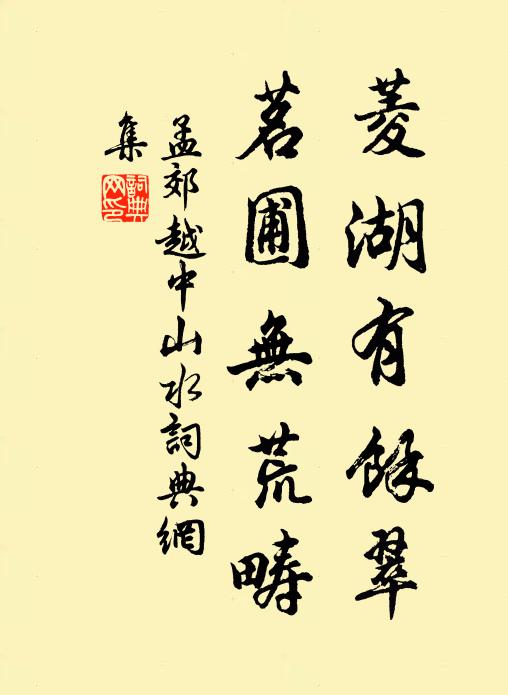 菱湖有餘翠
茗圃無荒疇
孟郊越中山水詞典網
集
詞典
网印